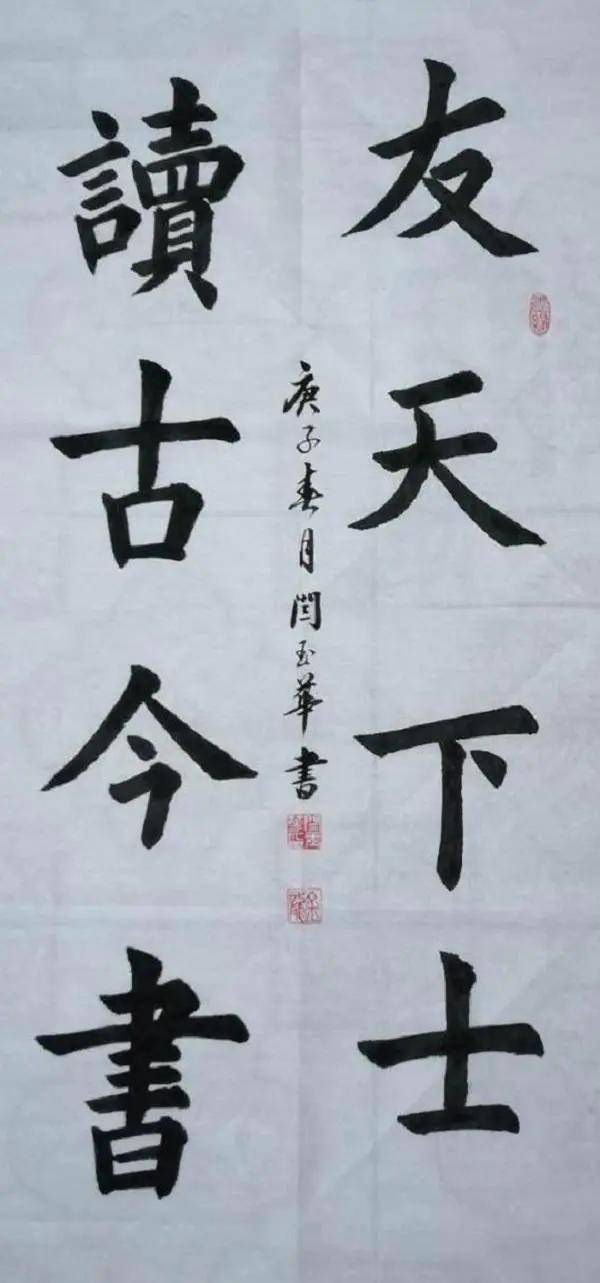 友天下士
讀古今書
庚子春月閆玉華書